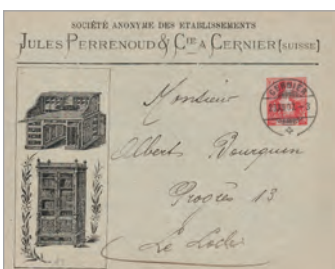 SOCIÉTÉ ANONYME DES ETABLISSEMENTS
JULES PERRENOUD & CIE A CERNIER [SUISSE]
CERNIER
Monsieur
Albert Bourquin
Progrès 13
Le Locle